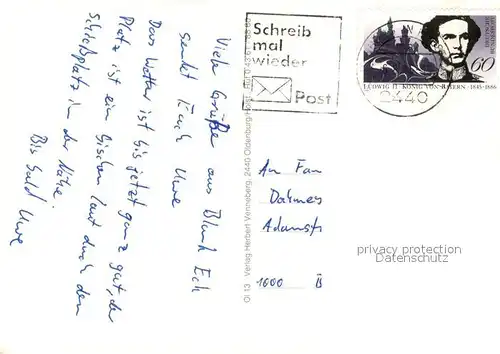 Viele Grüße aus Blank Eck
sendet Euch Uwe
Das Wetter ist bis jetzt ganz gut, der
Platz ist ein bischen laut durch den
Schießplatz in der Nähe.
Bis bald Uwe
Schreib
mal
wieder
Post
60
LUDWIG II. · KÖNIG VON BAYERN · 1845-1886
2440
Verlag Herbert Wenneberg, 2440 Oldenburg-Holst.
Ol 13
An Fam
Dahmes
Adamstr
1000 B
privacy protection
Datenschutz